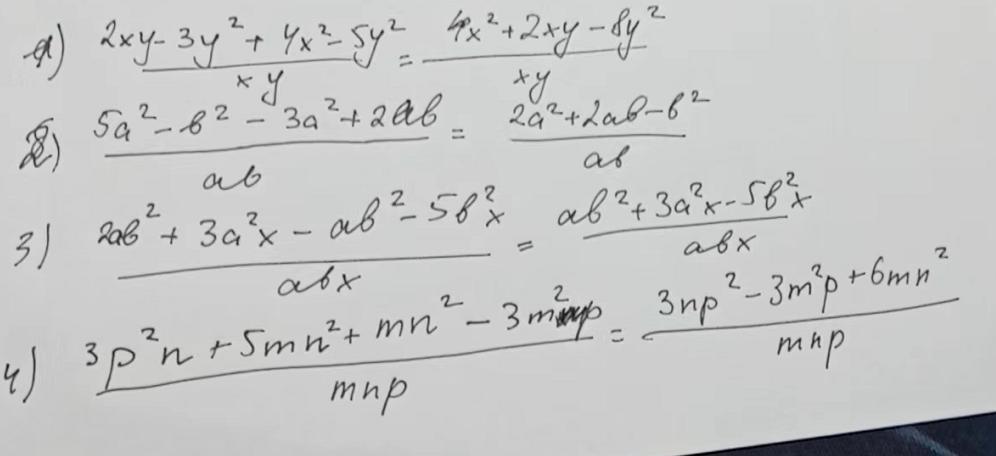 1) (2xy - 3y² + 4x² - 5y²)/(xy) = (4x² + 2xy - 8y²)/(xy)
2) (5a² - b² - 3a² + 2ab)/(ab) = (2a² + 2ab - b²)/(ab)
3) (2ab² + 3a²x - ab² - 5b²x)/(abx) = (ab² + 3a²x - 5b²x)/(abx)
4) (3p²n + 5mn² + mn² - 3m²p)/(mnp) = (3np² - 3m²p + 6mn²)/(mnp)